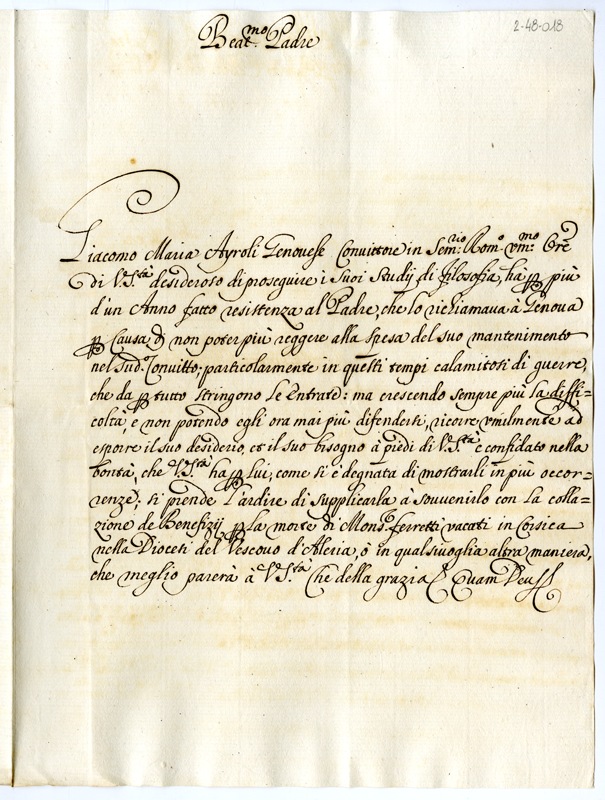 2-48-018
Beat.mo Padre
Giacomo Maria Ayroli Genovese Convittore in Sem.rio Rom.o um.mo Ore
di V.S.tà desideroso di proseguire i suoi Studij di filosofia, hà p più
d'un Anno fatto resistenza al Padre, che lo richiamava à Genova
p Causa di non poter più reggere alla spesa del suo mantenimento
nel sud.o Convitto; particolarmente in questi tempi calamitosi di guerre,
che da p tutto stringono le Entrate: ma crescendo sempre più la diffi=
coltà, e non potendo egli ora mai più difendersi, ricore umilmente ad
esporre il suo desiderio, et il suo bisogno à piedi di V.S.tà e confidato nella
bontà, che V.S.tà ha p lui, come si è degnata di mostrarli in più occor=
renze; si prende l'ardire di supplicarla a souvenirlo con la colla=
zione de Benefizij p la morte di Mons.r ferretti vacati in Corsica
nella Diocesi del Vescovo d'Aleria, ò in qualsivoglia altra maniera,
che meglio parerà à V.S.tà Che della grazia Quam Deus